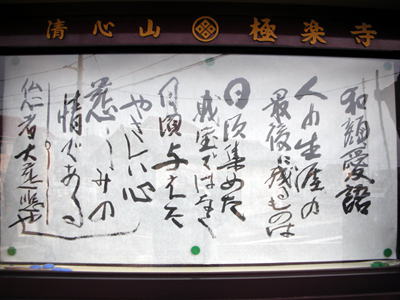 清心山 極楽寺
和顔愛語
人の生涯の
最後に残るものは
日頃集めた
財宝ではなく
日頃与えた
やさしい心
慈しみの
情である
仏心者大慈悲